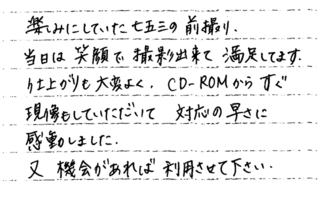 楽しみにしていた七五三の前撮り.
当日は笑顔で撮影出来て満足してます.
仕上がりも大変よく、CD-ROMからすぐ
現像もしていただいて 対応の早さに
感動しました.
又 機会があれば利用させて下さい.